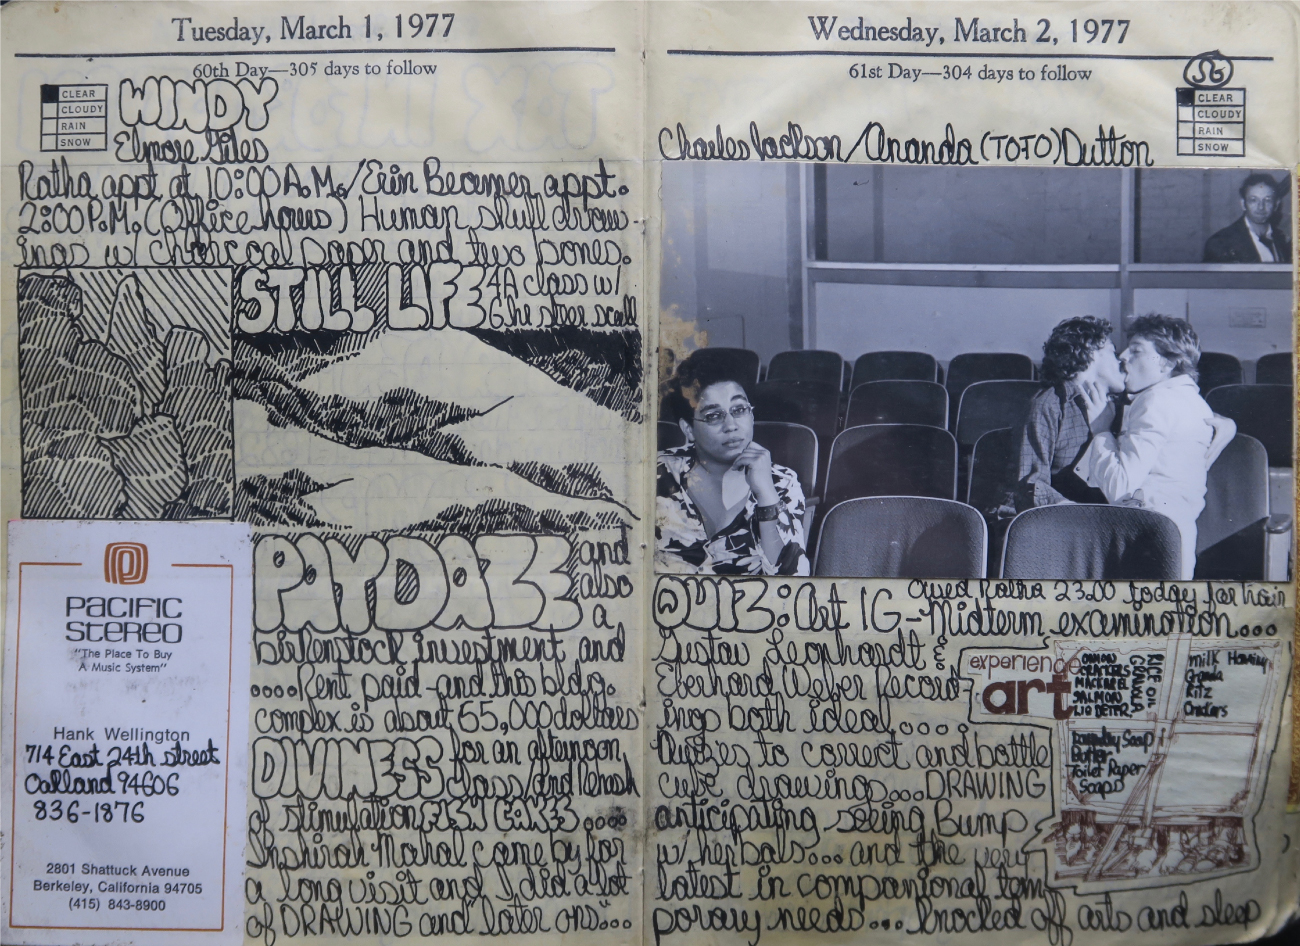 Tuesday, March 1, 1977
60th Day—305 days to follow
CLEAR
CLOUDY
RAIN
SNOW
WINDY
Elmore Giles
Ratha appt at 10:00 A.M./Erin Beamer appt.
2:00 P.M. (Office hours) Human skull draw
ings w/ charcoal paper and two bones.
STILL LIFE
4A class w/
PAYDAZE
and
also
a
birkenstock investment and
....Rent paid-and this bldg.
complex is about 65,000 dollars
DIVINESS
for an afternoon
class/and
of stimulation
Inshirah Mahal came by for
a long visit and I did a lot
of DRAWING and "later ons"...
PACIFIC
STEREO
"The Place To Buy
A Music System"
Hank Wellington
714 East 24th street
Oakland 94606
836-1876
2801 Shattuck Avenue
Berkeley, California 94705
(415) 843-8900
Wednesday, March 2, 1977
61st Day—304 days to follow
56
CLEAR
CLOUDY
RAIN
SNOW
Charles Jackson/Ananda (TOTO) Dutton
Owed Ratha 23.00 today for hair
QUIZ: Art 1G-Midterm examination...
Gustav Leonhardt &
Eberhard Weber Record-
ings both ideal....
Quizzes to correct and bottle
cube drawings...DRAWING
anticipating seeing Bump
w/ herbals... and the very
latest in companional tem
porary needs... knocked off arts and sleep
experience
art
ONION
MACKEREL
SALMON
RICE
OIL
Milk
Granda
Ritz
Butter
Toilet Paper
Soaps